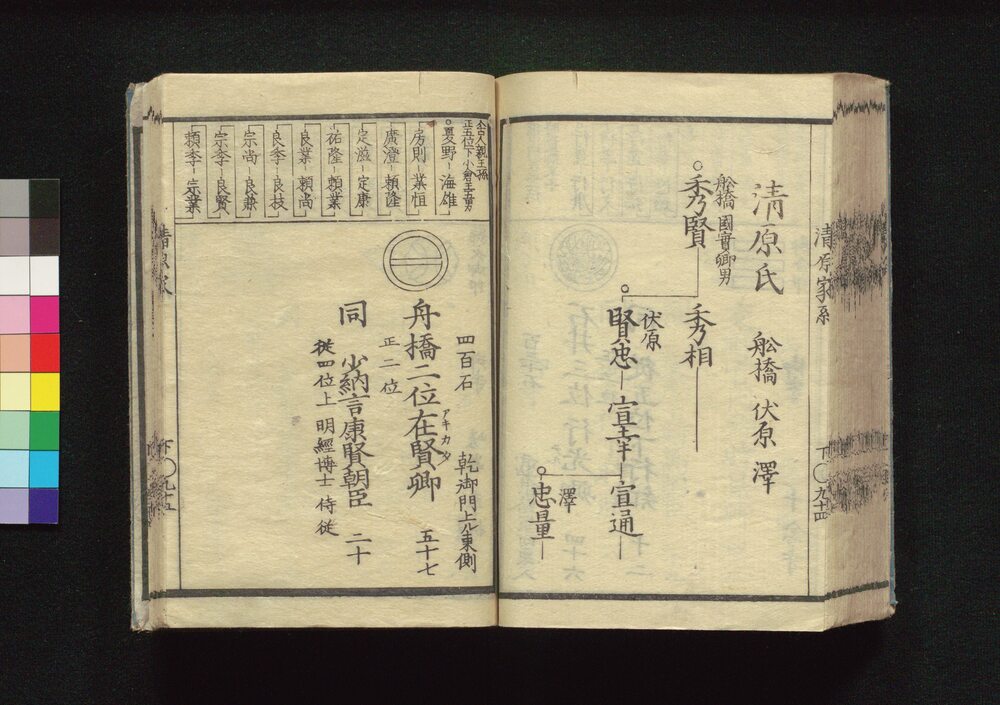 清原家系
下〇九十四
清原氏 舩橋 伏原 澤
舩橋 國賢卿男
秀賢 秀相
伏原
賢忠 宣幸 宣通
澤
忠量
舎人親王孫
正五位下小倉王五男
夏野 海雄
房則 業恒
廣澄 頼隆
定滋 定康
祐隆 頼業
良業 頼尚
良季 良枝
宗尚 良兼
宗季 良賢
頼季 宗業
四百石 乾御門上ル東側
舟橋二位在賢卿 五十七
アキカタ
正二位
同 少納言康賢朝臣 二十
従四位上 明經博士 侍従
清原家
下〇九十五